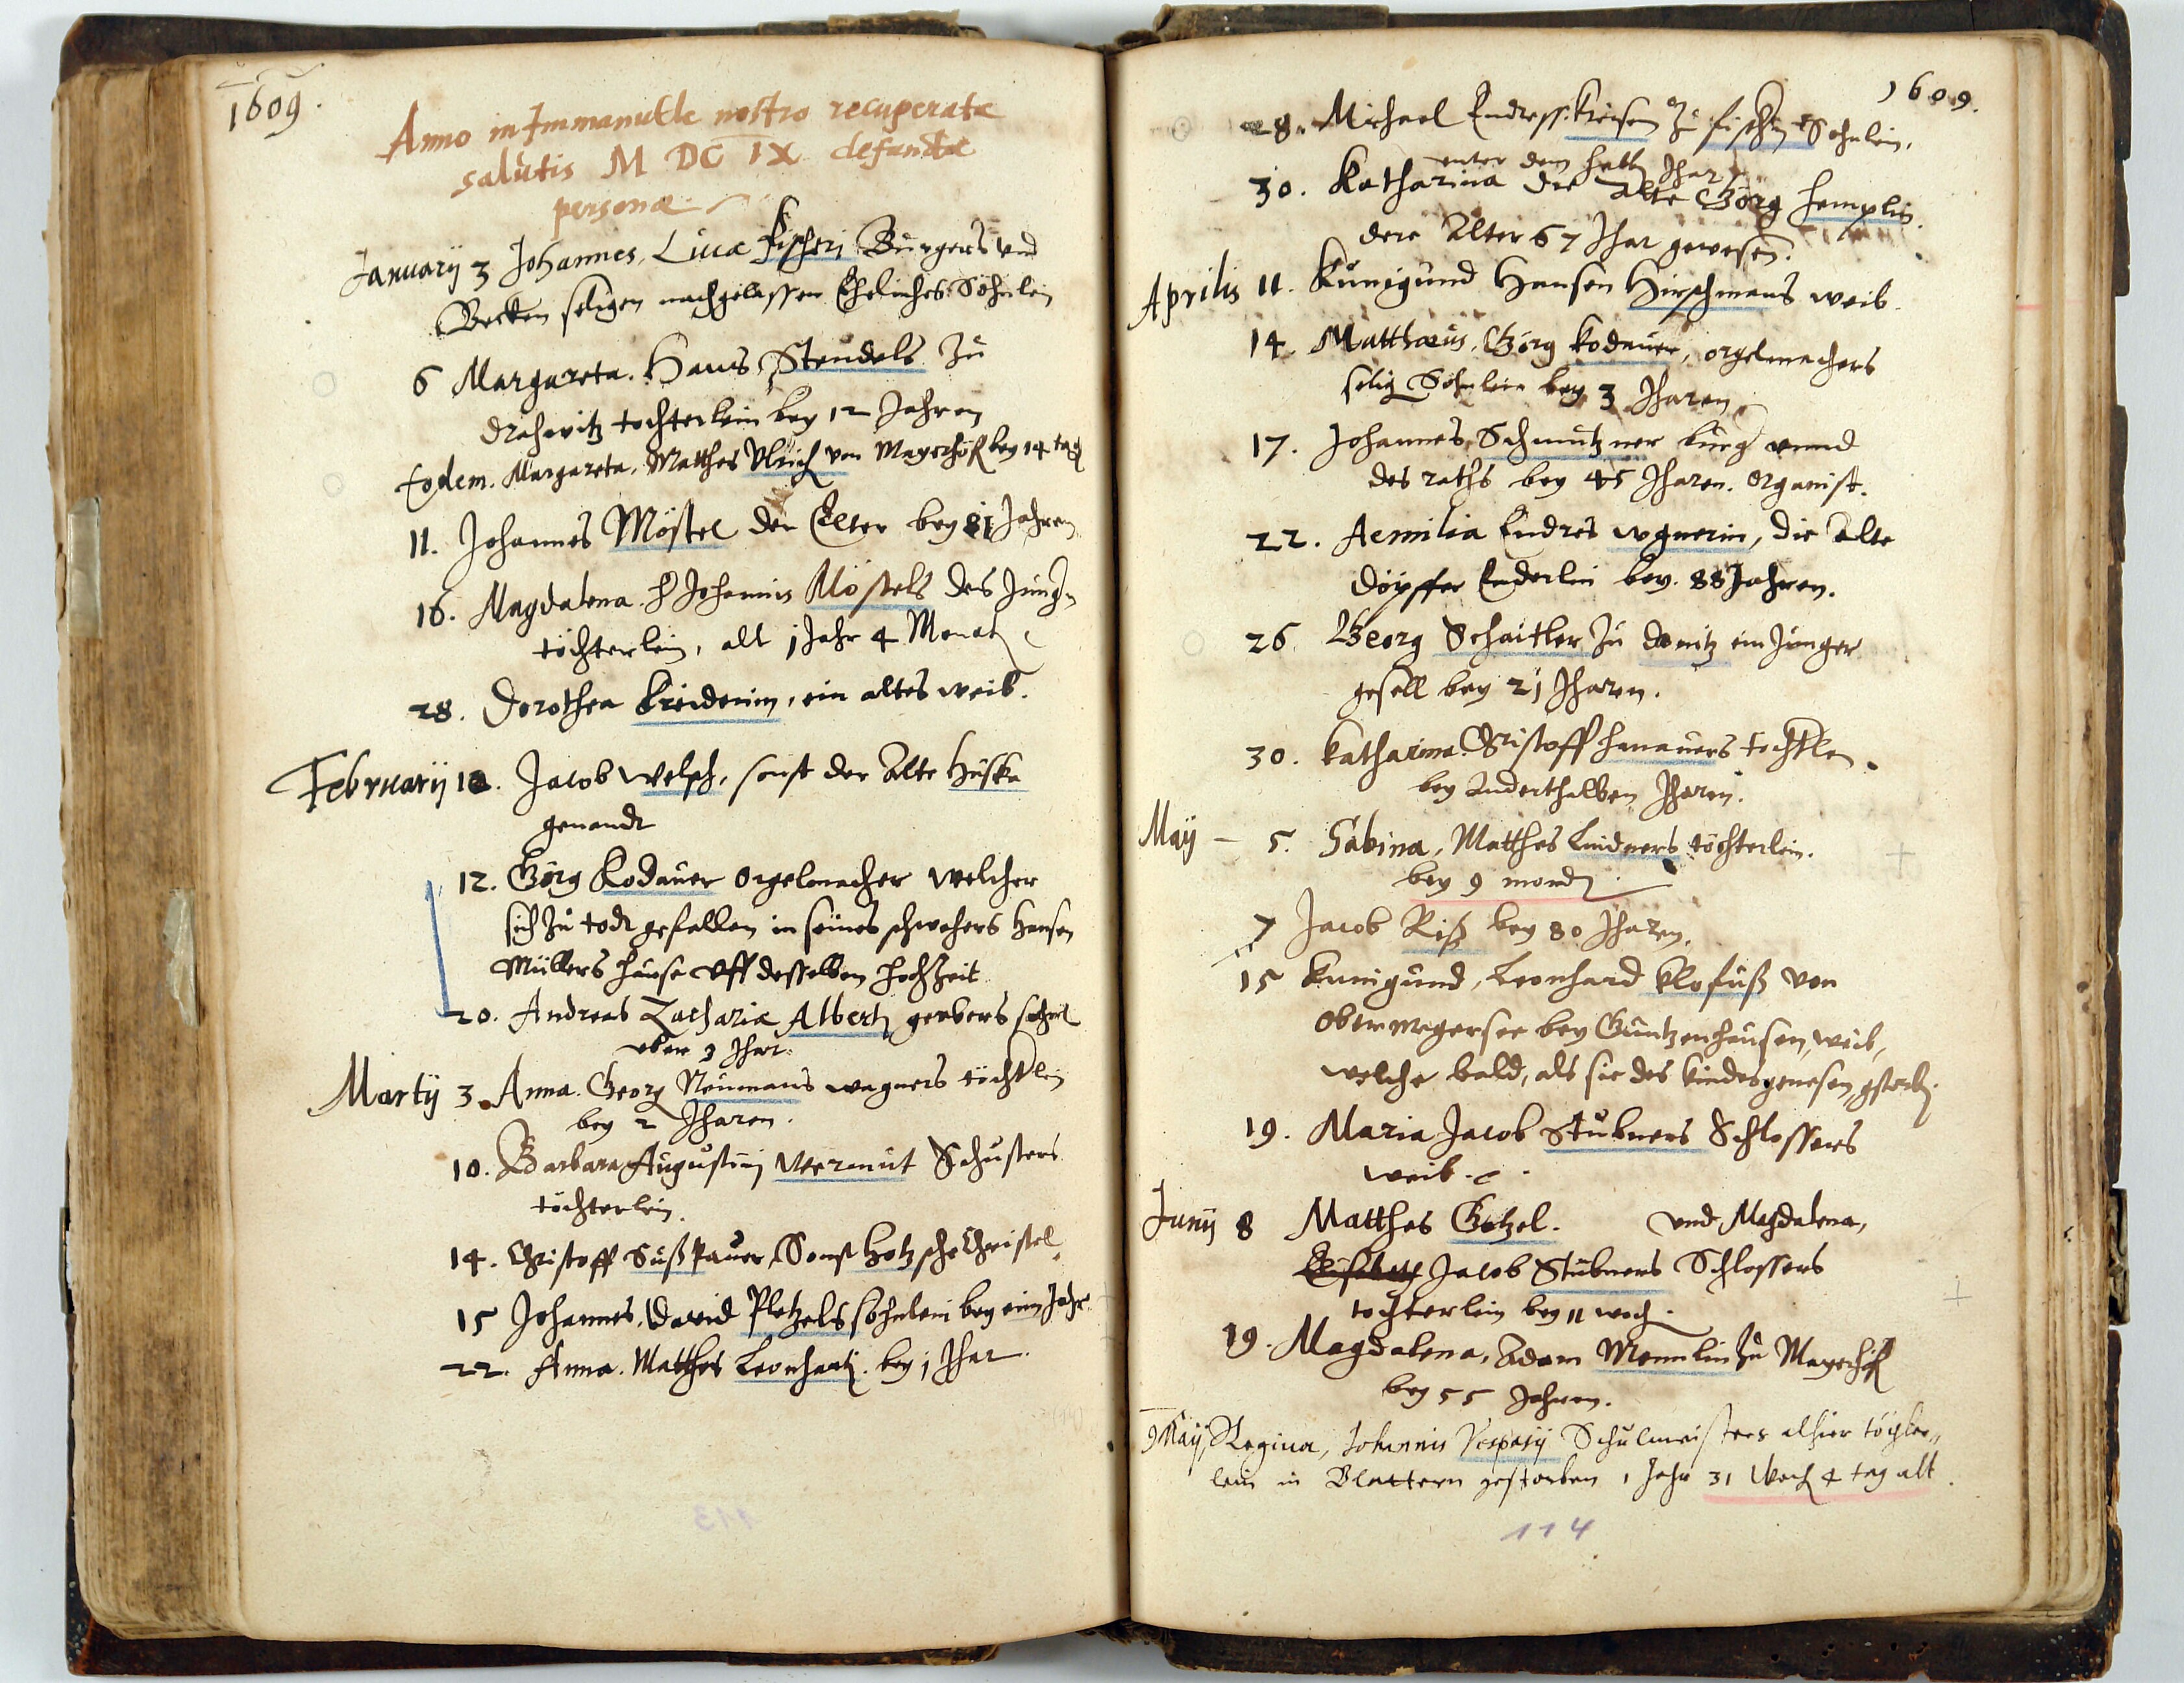 1609.
Anno in Immanuele nostro recuperatæ
salutis M DC IX defunctæ
personæ
Januarij 3 Johannes, Lucæ Fischeri Burgers und
Becken seligen nachgelassen Eheliches Söhnlein
6 Margareta. Hans Steudels zu
Drahewitz tochterlein bey 12 Jahren
Eodem. Margareta. Matthes Ulrich von Mayerhöf bey 14 tag
11. Johannes Möstel der Elter bey 81 Jahren
16. Magdalena. H Johannis Möstels des Jungen
töchterlein, alt 1 Jahr 4 Monat
28. Dorothea Kreiderin, ein altes weib.
Februarij 10. Jacob Welsch, sonst der Alte Huska
genandt
12. Görg Kodauer Orgelmacher welcher
sich zu todt gefallen in seines schwehers Hansen
Müllers hause uff desselben hochzeit
20. Andreas Zachariæ Albert gerbers
uber 3 Jhar.
Martij 3. Anna. Georg Neumans wagners töchtlein
bey 2 Jharen.
10. Barbara Augustinj Wermut Schusters
töchterlein.
14. Christoff Süßpauer, Sonst Holtzsche Christel.
15 Johannes, David Pletzels söhnlein bey eim Jahr
22. Anna. Matthes Leonhart. bey 1 Jhar.
113
1609.
28. Michael Endress Kreisen zu fischern Söhnlein,
unter dem halb Jhar
30. Katharina die Alte Görg Hemplin.
dere Alter 67 Jhar gewesen.
Aprilis 11. Kunigund Hansen Hirschmans weib.
14. Matthæus, Görg Kodauer, orgelmachers
selig Söhnlein bey 3 Jharen
17. Johannes Schmutzner burg unnd
des raths bey 45 Jharen. Organist.
22. Aemilia Endres Wgnerin, die Alte
döpffer Enderlin bey. 88 Jahren.
26. Georg Schaitler zu donitz ein Junger
gesell bey 21 Jharen.
30. Katharina Cristoff Hanauers tochtlen.
bey Anderthalben Jharen.
Maij – 5. Sabina, Matthes Lindners töchterlein.
bey 9 mond
7 Jacob Riß bey 80 Jharen.
15 Kunigund, Leonhard Klofuß von
Obermegersee bey Guntzenhausen, weib,
welche bald, als sie des kindes genesen, gstorb.
19. Maria Jacob Stübners Schlossers
weib.
Junij 8 Matthes Götzel. und Magdalena,
Jacob Stübners Schlossers
tochterlein bey 11 woch.
19. Magdalena, Adam Memlin zu Mayerhöf
bey 55 Jahren.
9 Maij Regina, Johannis Vespasij Schulmeisters alhier töchter„
lein in Blattern gestorben 1 Jahr 31 Woch 4 tag alt.
114